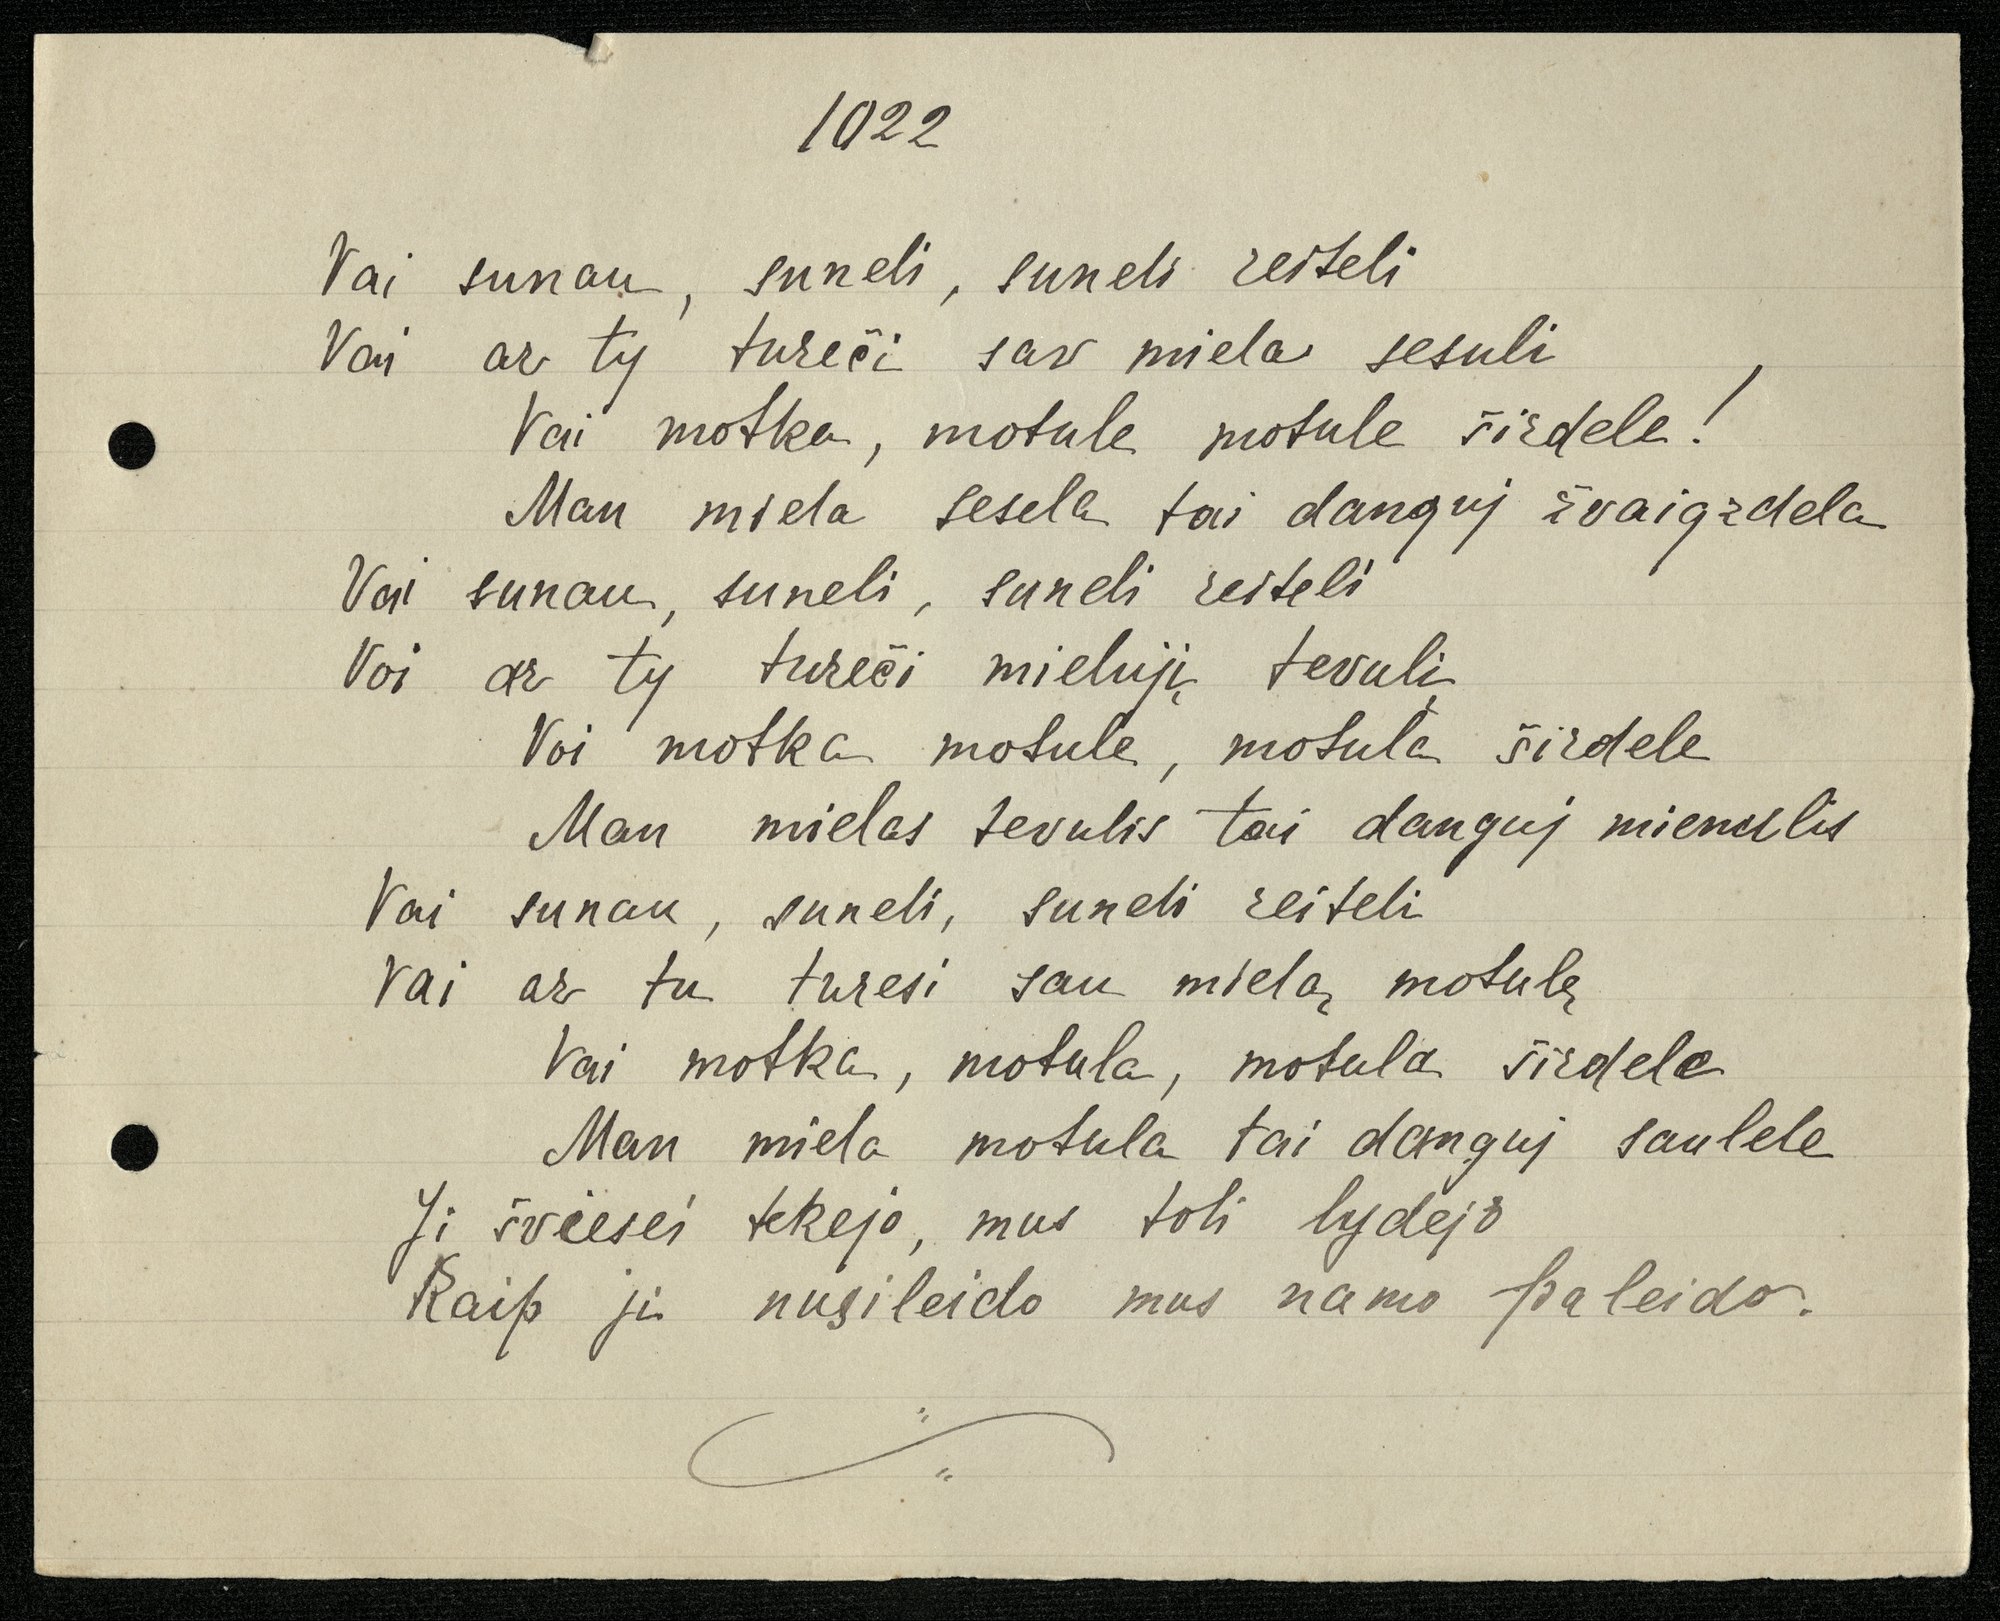 1022
Vai sunau, suneli, suneli reiteli
Vai ar ty tureči sav miela sesuli
Vai motka, motule motule širdele!
Man miela sesela tai danguj žvaigzdela
Vai sunau, suneli, suneli reiteli
Voi ar ty tureči mielujį tevulį
Voi motka motule, motula širdele
Man mielas tevulis tai danguj mienulis
Vai sunau, suneli, suneli reiteli
Vai ar tu turesi sau mielą motulę
Vai motka, motula, motula širdele
Man miela motula tai danguj saulele
Ji šviesei tekejo, mus toli lydejo
Kaip ji nusileido mus namo paleido.